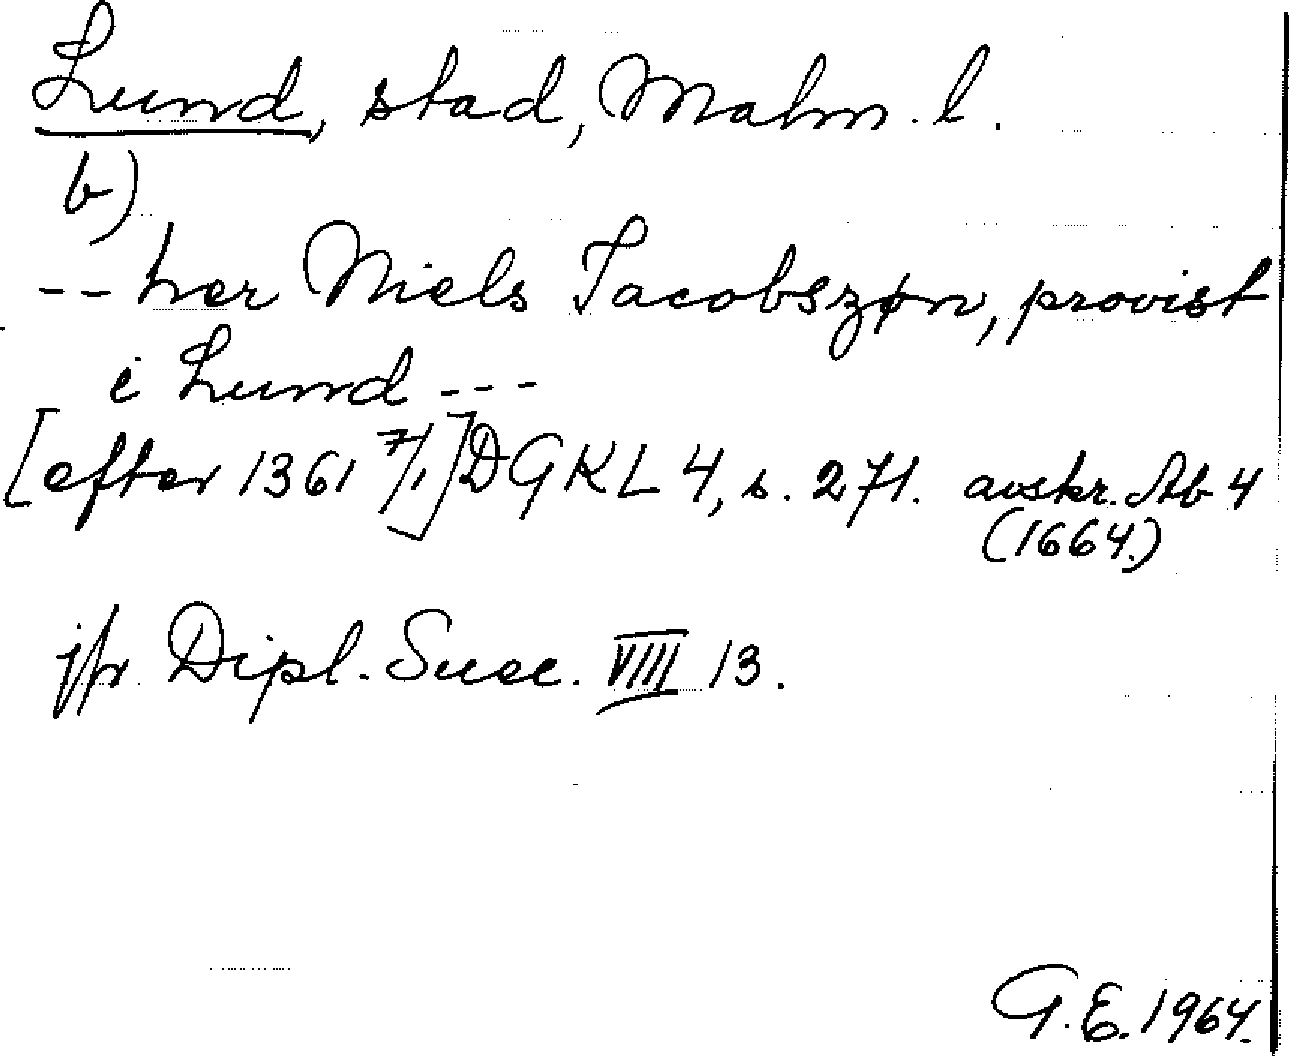 Lund, stad, Malm. l.
b)
-- her Niels Jacobszøn, provist
i Lund ---
[efter 1361 7/1] DGKL 4, s. 271. avskr. Ab 4
(1664.)
jfr Dipl. Suec. VIII 13.
G.E. 1964.